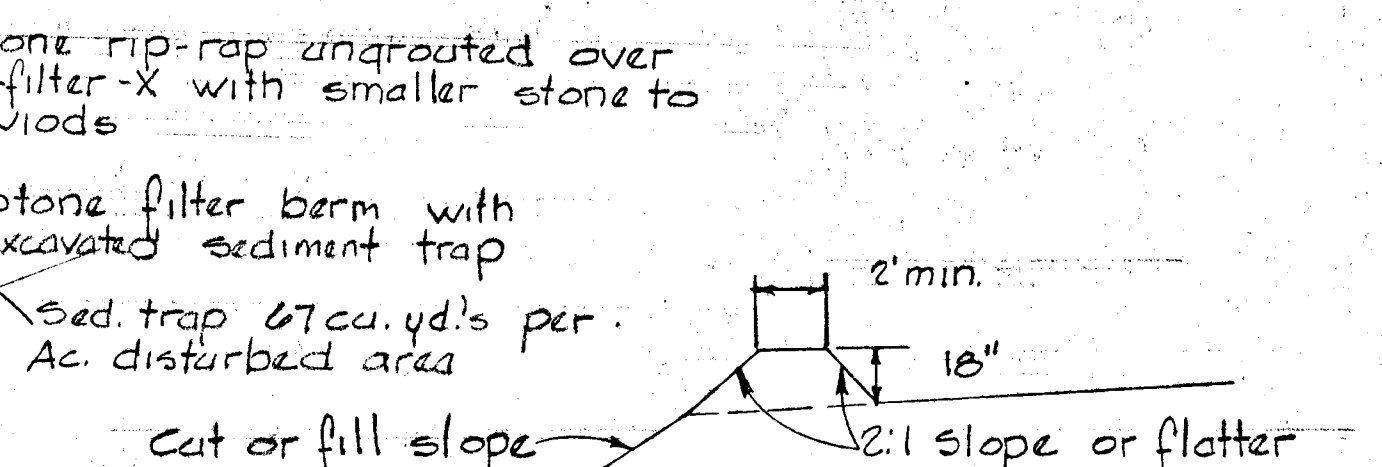 one rip-rap ungrouted over
filter-X with smaller stone to
viods
stone filter berm with
xcavated sediment trap
Sed. trap 67 cu. yd.'s per.
Ac. disturbed area
2' min.
18"
Cut or fill slope
2:1 slope or flatter